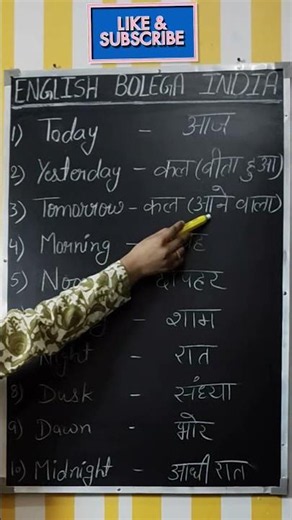 LIKE &
SUBSCRIBE
ENGLISH BOLEGA INDIA
1) Today - आज
2) Yesterday - कल (बीता हुआ)
3) Tomorrow - कल (आने वाला)
4) Morning -
5)
- शाम
Night - रात
8) Dusk - संध्या
9) Dawn - भोर
10) Midnight - आधी रात